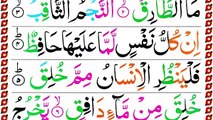 مَا الطَّارِقُ ۝٢ النَّجْمُ الثَّاقِبُ ۝٣
اِنْ كُلُّ نَفْسٍ لَّمَّا عَلَيْهَا حَافِظٌ ۝٤
فَلْيَنْظُرِ الْاِنْسَانُ مِمَّ خُلِقَ ۝٥
خُلِقَ مِنْ مَّآءٍ دَافِقٍ ۝٦ يَّخْرُجُ